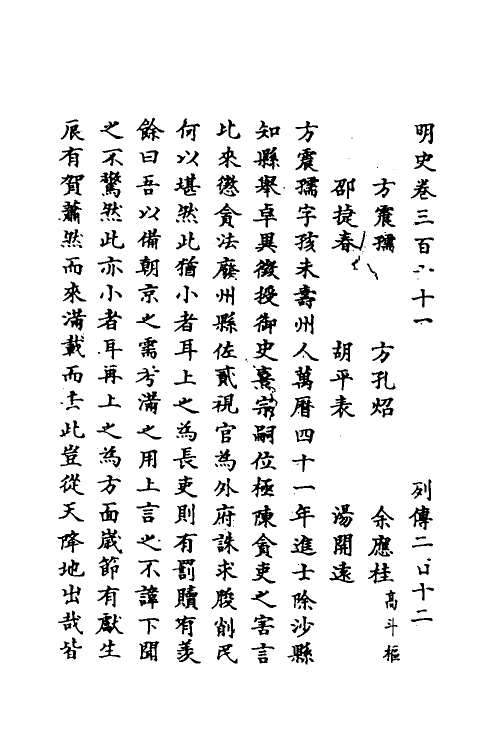 明史卷三百六十一　列傳二百十二
方震孺　方孔炤　余應桂高斗樞
邵捷春　胡平表　湯開遠
方震孺字孩未壽州人萬曆四十一年進士除沙縣
知縣舉卓異徵授御史熹宗嗣位極陳貪吏之害言
比來懲貪法廢州縣佐貳視官為外府誅求朘削民
何以堪然此猶小者耳上之為長吏則有罰贖有羨
餘曰吾以備朝京之需考滿之用上言之不諱下聞
之不驚然此亦小者耳再上之為方面歲節有獻生
辰有賀蕭然而來滿載而去此豈從天降地出哉皆